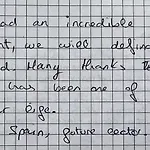 ad an incredible
t, we will define
d. Many thanks to
has been one of
r life.
Spain, future doctor.